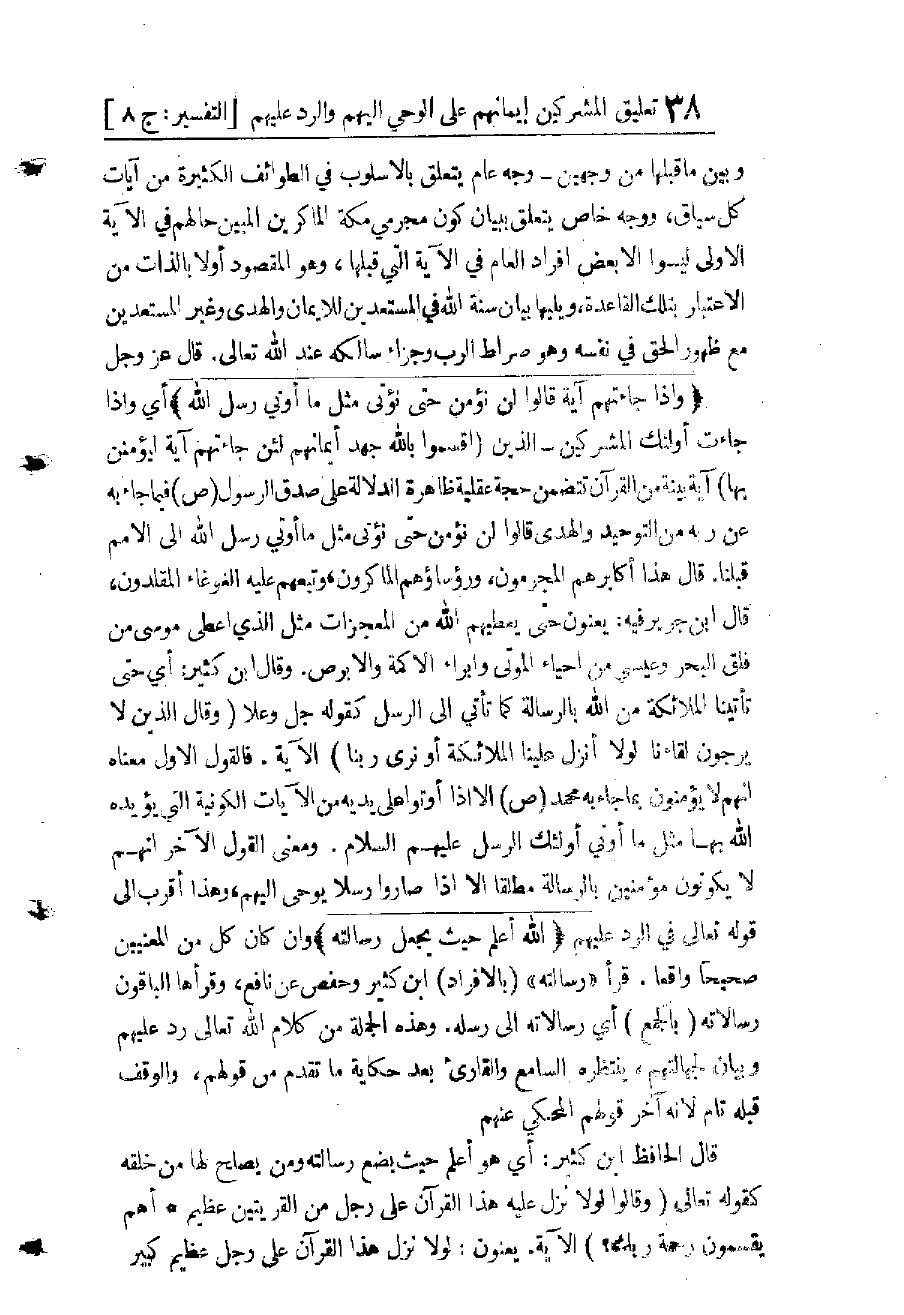 ٣٨ تعليق المشركين إيمانهم على الوحي اليهم والرد عليهم [التفسير: ج ٨]
وبين ماقبلها من وجهين ــ وجه عام يتعلق بالاسلوب في الطوائف الكثيرة من آيات
كل سياق، ووجه خاص يتعلق ببيان كون مجرمي مكة الماكرين المبين حالهم في الآية
الاولى ليسوا الا بعض افراد العام في الآية التي قبلها، وهو المقصود أولا بالذات من
الاعتبار بتلك القاعدة، ويليها بيان سنة الله في المستعدين للايمان والهدى وغير المستعدين
مع ظهور الحق في نفسه وهو صراط الرب وجزاء سالكه عند الله تعالى. قال عز وجل
﴿ واذا جاءتهم آية قالوا لن نؤمن حتى نؤتى مثل ما أوتي رسل الله ﴾ أي واذا
جاءت أولئك المشركين ــ الذين (اقسموا بالله جهد أيمانهم لئن جاءتهم آية ليؤمنن
بها) آية بينة من القرآن تتضمن حجة عقلية ظاهرة الدلالة على صدق الرسول (ص) فيما جاء به
عن ربه من التوحيد والهدى قالوا لن نؤمن حتى نؤتى مثل ما أوتي رسل الله الى الامم
قبلنا. قال هذا أكابرهم المجرمون، ورؤساؤهم الماكرون، وتبعهم عليه الغوغاء المقلدون،
قال ابن جرير فيه: يعنون حتى يعطيهم الله من المعجزات مثل الذي اعطى موسى من
فلق البحر وعيسى من احياء الموتى وابراء الاكمه والابرص. وقال ابن كثير: أي حتى
تأتينا الملائكة من الله بالرسالة كما تأتي الى الرسل كقوله جل وعلا (وقال الذين لا
يرجون لقاءنا لولا أنزل علينا الملائكة أو نرى ربنا) الآية. فالقول الاول معناه
انهم لا يؤمنون بما جاء به محمد (ص) الا اذا أوتوا على يديه من الآيات الكونية التي يؤيده
الله بهـا مثل ما أوتي أولئك الرسل عليهـم السلام. ومعنى القول الآخر انهـم
لا يكونون مؤمنين بالرسالة مطلقا الا اذا صاروا رسلا يوحى اليهم، وهذا أقرب الى
قوله تعالى في الرد عليهم ﴿ الله أعلم حيث يجعل رسالته ﴾ وان كان كل من المعنيين
صحيحا واقعا. قرأ «رسالته» (بالافراد) ابن كثير وحفص عن نافع، وقرأها الباقون
رسالاته (بالجمع) أي رسالاته الى رسله. وهذه الجملة من كلام الله تعالى رد عليهم
وبيان لجهالتهم، ينتظره السامع والقارئ بعد حكاية ما تقدم من قولهم، والوقف
قبله تام لانه آخر قولهم المحكي عنهم
قال الحافظ ابن كثير: أي هو أعلم حيث يضع رسالته ومن يصلح لها من خلقه
كقوله تعالى (وقالوا لولا نزل عليه هذا القرآن على رجل من القريتين عظيم * أهم
يقسمون رحمة ربك؟) الآية. يعنون: لولا نزل هذا القرآن على رجل عظيم كبير